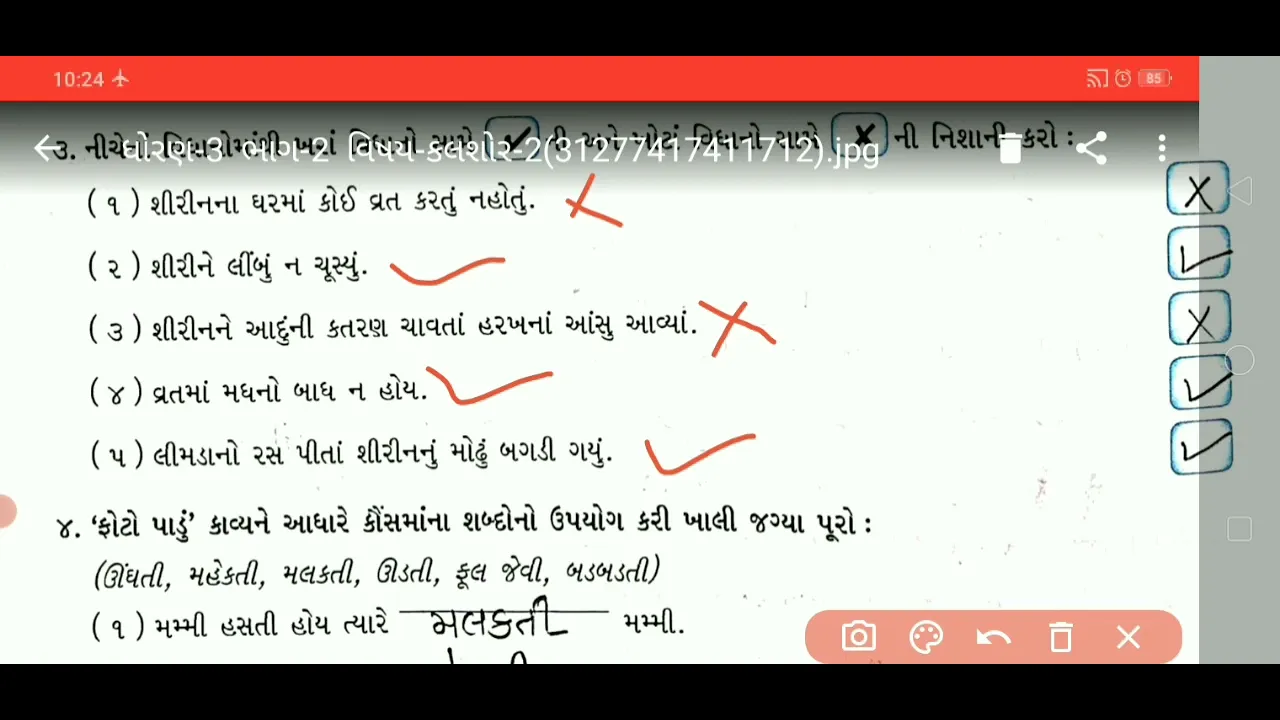 10:24 85
ધોરણ-3 ભાગ-2 વિષય-કલશોર-2(31277417411712).jpg
૩. નીચેનાં વિધાનોમાંથી ખરાં વિધાનો સામે ✓ ની અને ખોટાં વિધાનો સામે ✗ ની નિશાની કરો :
(૧) શીરીનના ઘરમાં કોઈ વ્રત કરતું નહોતું. ✗
(૨) શીરીને લીંબું ન ચૂસ્યું. ✓
(૩) શીરીનને આદુંની કતરણ ચાવતાં હરખનાં આંસુ આવ્યાં. ✗
(૪) વ્રતમાં મધનો બાધ ન હોય. ✓
(૫) લીમડાનો રસ પીતાં શીરીનનું મોઢું બગડી ગયું. ✓
૪. ‘ફોટો પાડું’ કાવ્યને આધારે કૌંસમાંના શબ્દોનો ઉપયોગ કરી ખાલી જગ્યા પૂરો :
(ઊંઘતી, મહેકતી, મલકતી, ઊડતી, ફૂલ જેવી, બડબડતી)
(૧) મમ્મી હસતી હોય ત્યારે મલકતી મમ્મી.